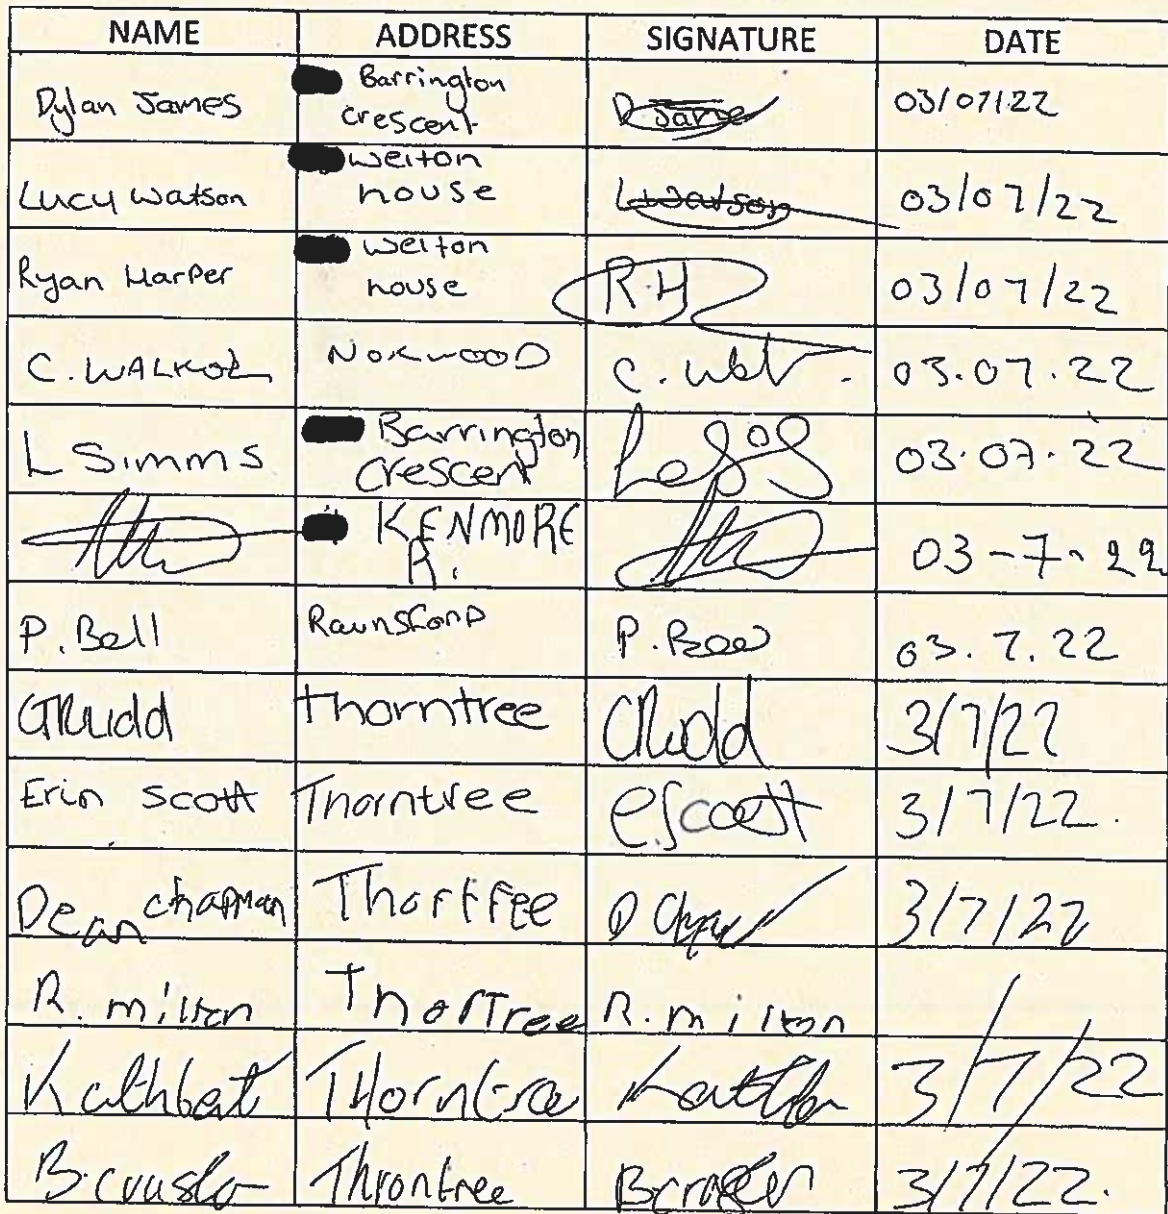 NAME ADDRESS SIGNATURE DATE
Dylan James Barrington crescent D James 03/07/22
Lucy Watson Welton house L Watson 03/07/22
Ryan Harper Welton house R.H 03/07/22
C. WALKOL NORWOOD C. 03.07.22
L Simms Barrington Crescent 03.07.22
KENMORE R. 03-7-22
P. Bell Raunsford P. Bell 03.7.22
GRudd Thorntree GRudd 3/7/22
Erin Scott Thorntree e.Scott 3/7/22.
Dean Chapman Thortree D 3/7/22
R. milton Thortree R. milton
K Thorntree 3/7/22
B. Throntree 3/7/22.